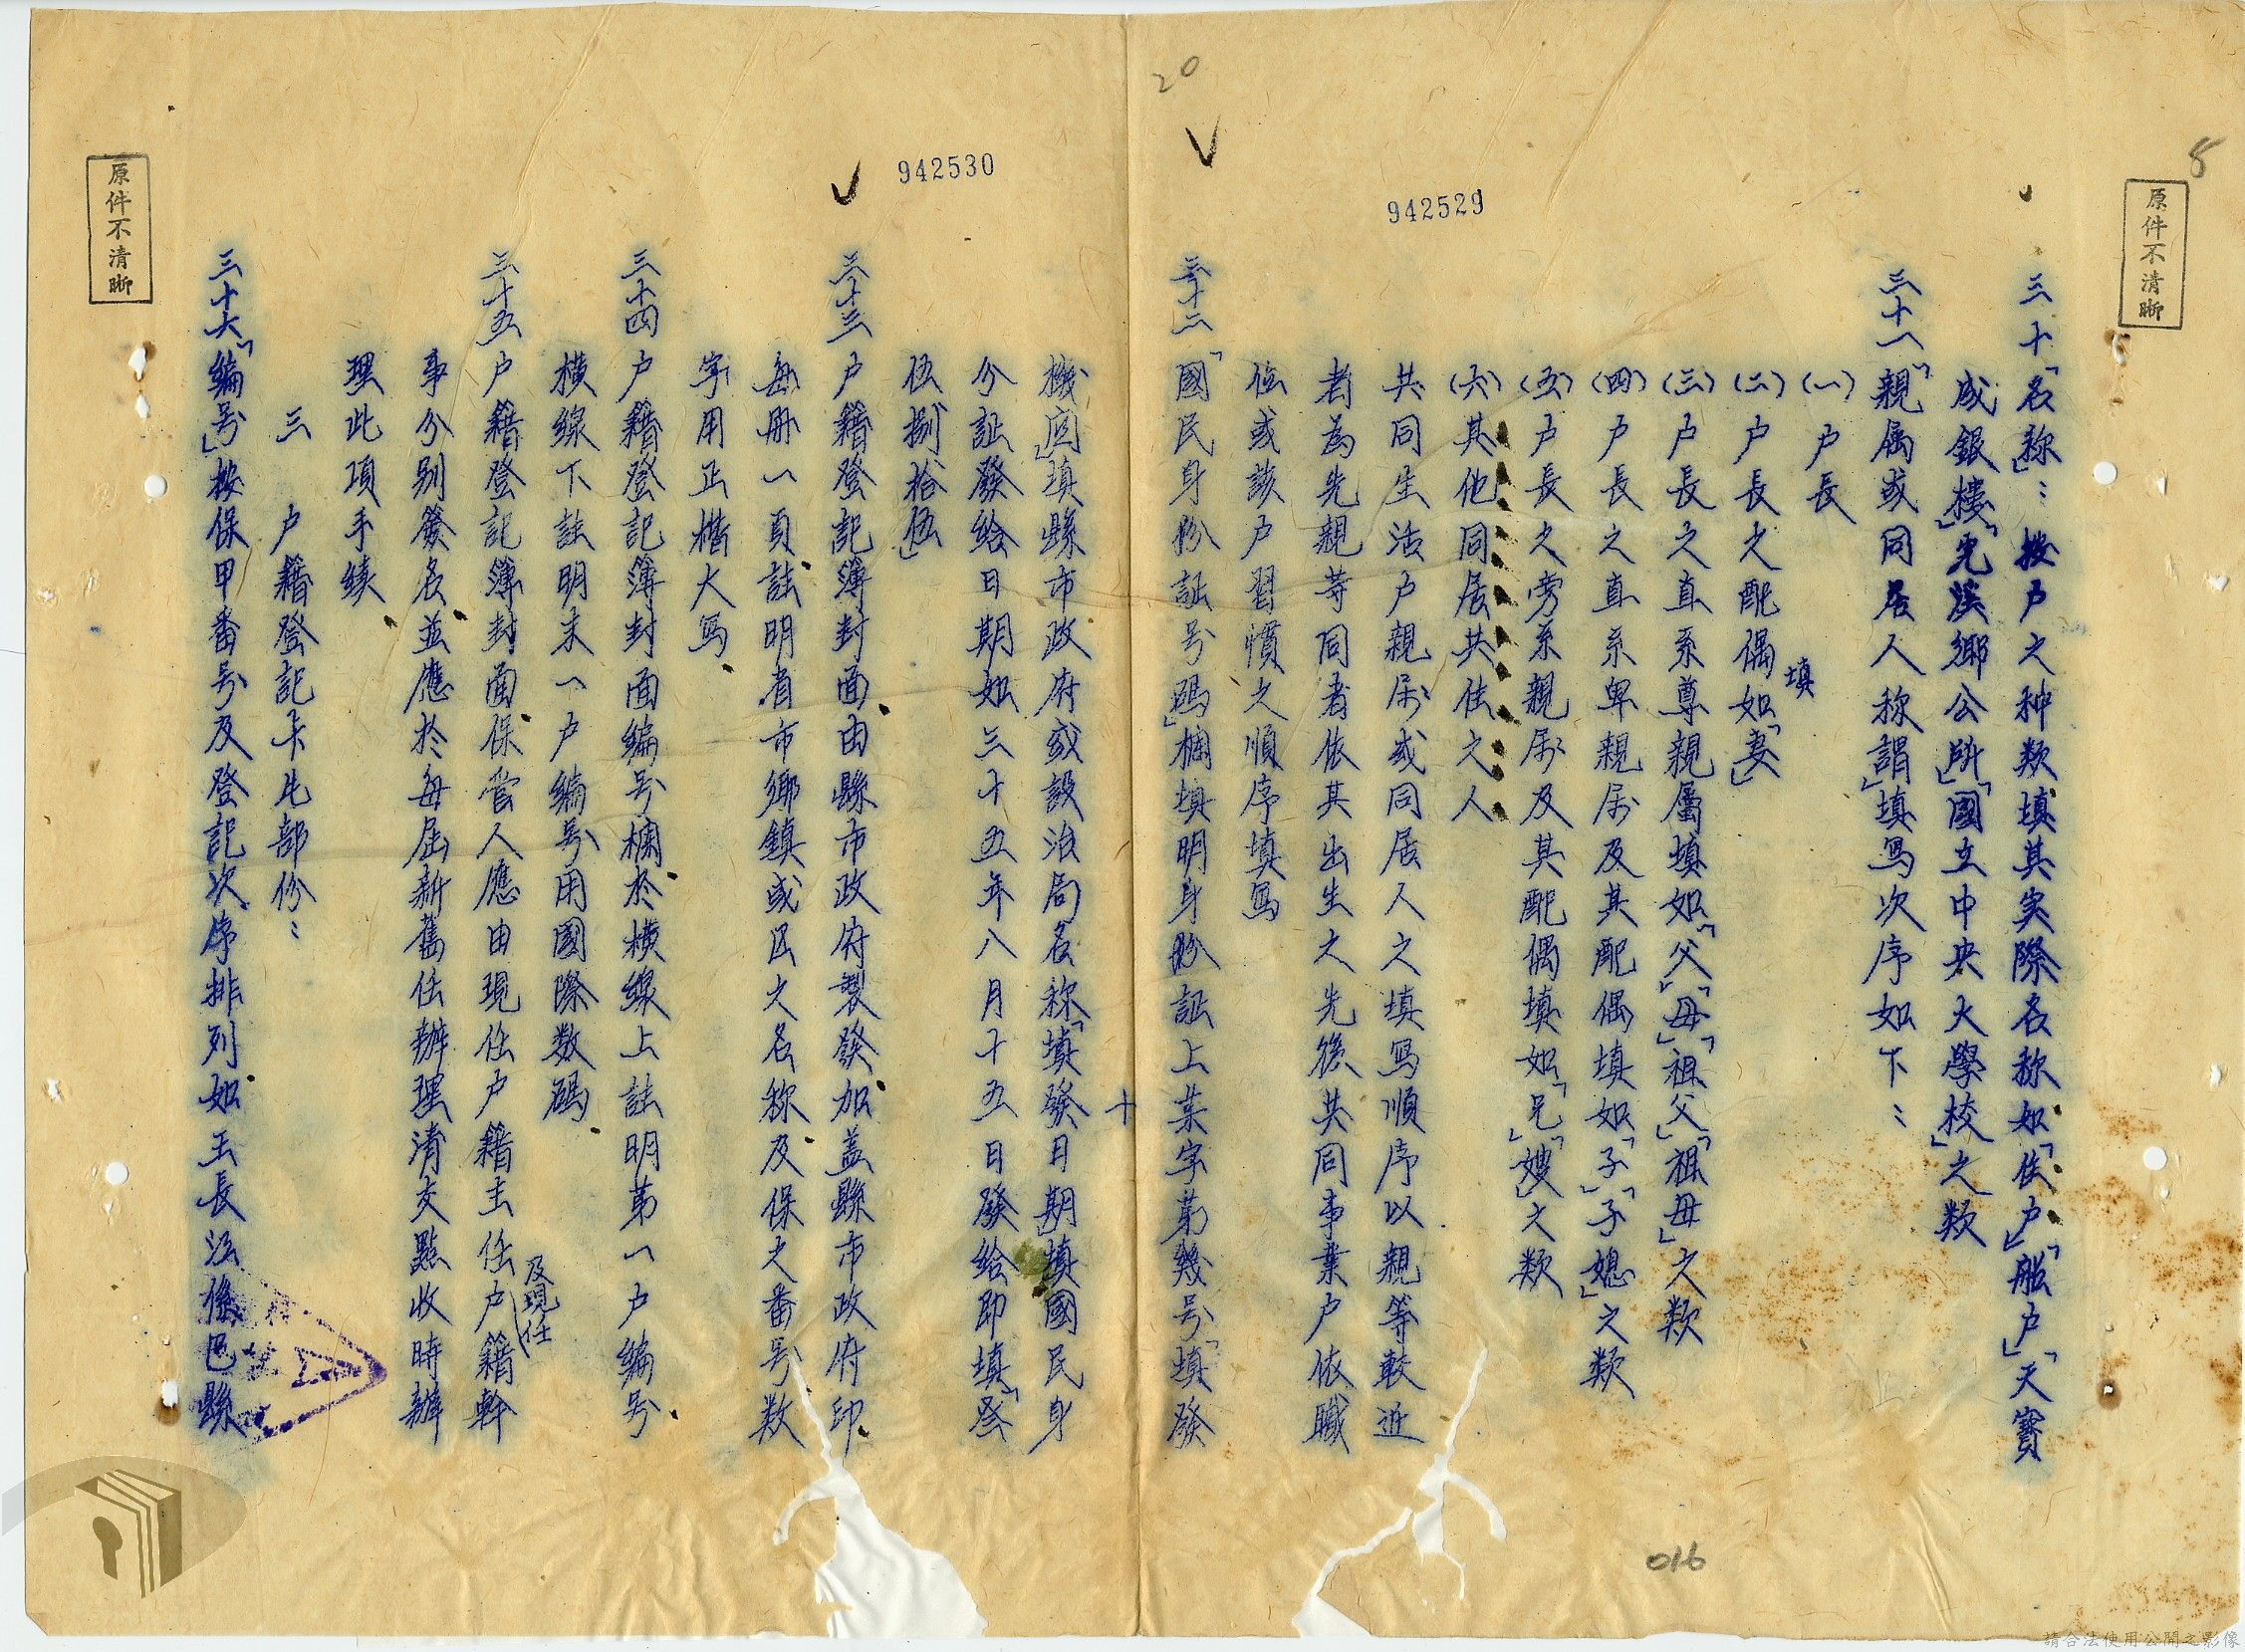 原件不清晰
8
三十「名称」：按户之种類填其実際名称如「住户」「船户」「天寶
成銀楼」「兜溪鄉公所」「國立中央大學校」之類
三十一「親属或同居人称謂」填写次序如下：
(一)户長
(二)户長之配偶如「妻」
填
(三)户長之直系尊親屬填如「父」「母」「祖父」「祖母」之類
(四)户長之直系卑親属及其配偶填如「子」「子媳」之類
(五)户長之旁系親属及其配偶填如「兄」「嫂」之類
(六)其他同居共住之人
共同生活户親属或同居人之填写順序以親等較近
者為先親等同者依其出生之先後共同事業户依職
位或該户習慣之順序填寫
三十二「國民身份証号碼」欄填明身份証上某字第幾号「填發
942529
20
016
十
機関」填縣市政府或設治局名称「填發日期」填國民身
分証發給日期如三十五年八月十五日發給即填「叁
伍捌拾伍」
942530
三十三户籍登記簿封面由縣市政府製發加盖縣市政府印
每册一頁註明省市鄉鎮或区之名称及保之番号数
字用正楷大写
三十四户籍登記簿封面編号欄於横線上註明第一户編号
横線下註明末一户編号用國際数碼
三十五户籍登記簿封面保管人應由現任户籍主任户籍幹
及現任
事分别簽名並應於每屆新舊任辦理清交點收時辦
理此項手续
三 户籍登記卡片部份：
三十六「編号」按保甲番号及登記次序排列如王長江係巴縣
原件不清晰
請合法使用公開之影像